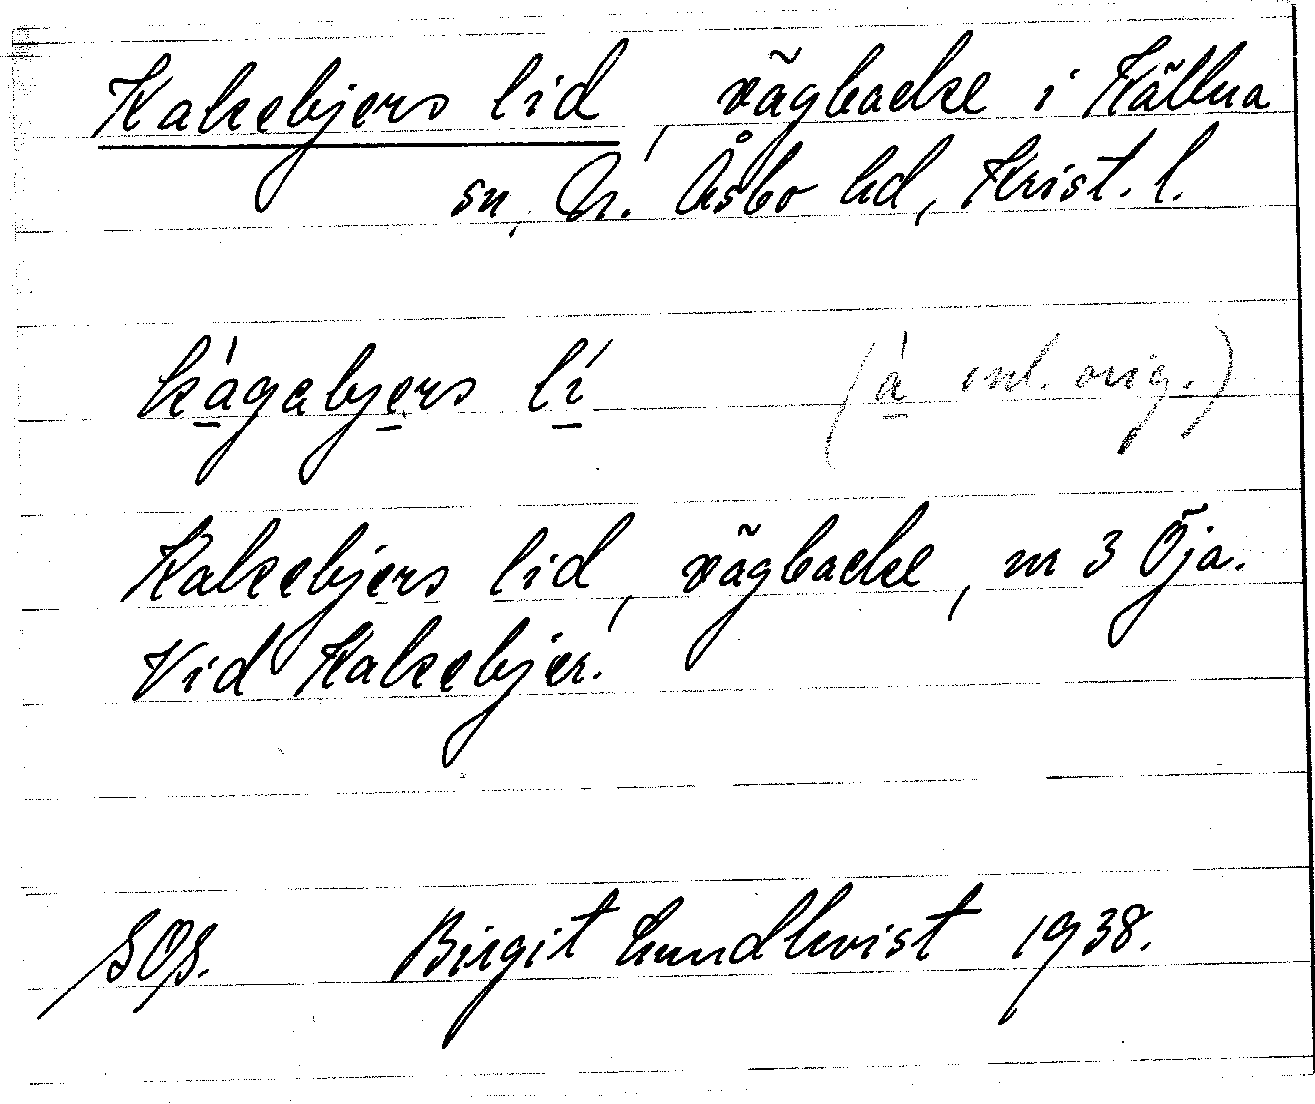 Kakebjers lid, vägbacke i Källna
sn, N. Åsbo hd, Krist. l.
kágabjers lí (á enl. orig.)
Kakebjers lid, vägbacke, nr 3 Öja.
Vid Kakebjer.
SOS. Birgit Lundkvist 1938.